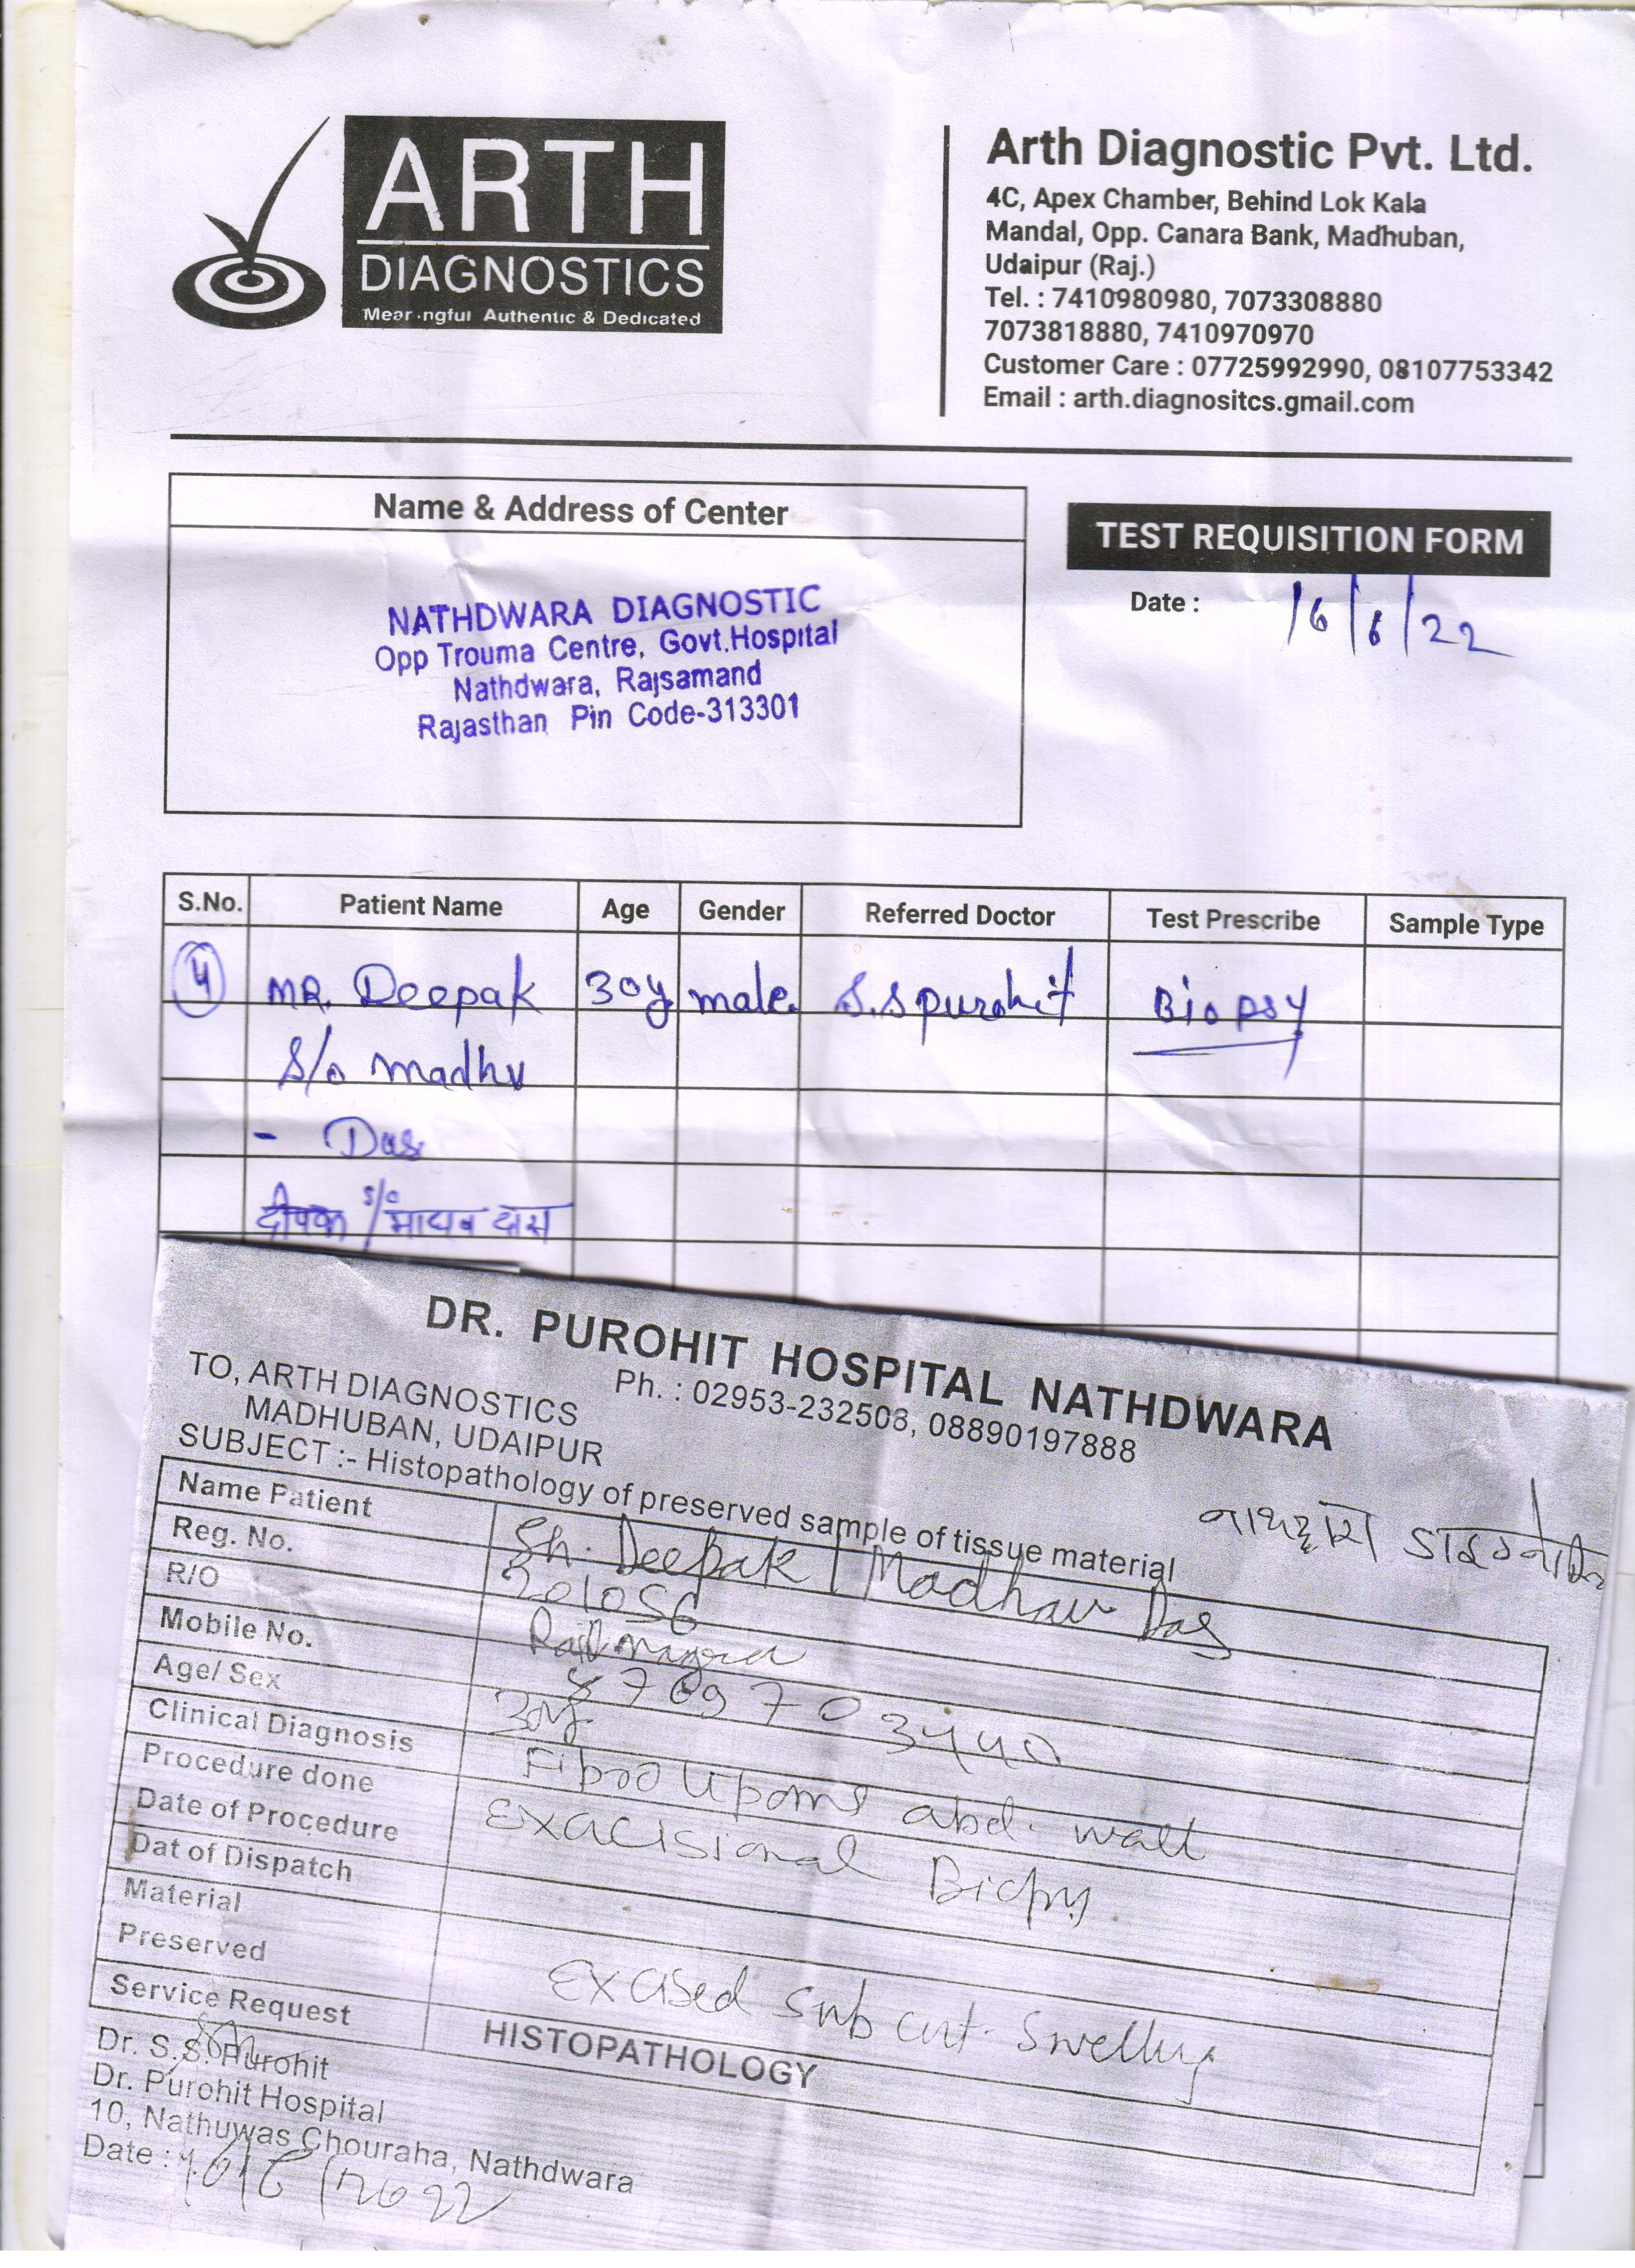 ARTH
DIAGNOSTICS
Mear ngful Authentic & Dedicated
Arth Diagnostic Pvt. Ltd.
4C, Apex Chamber, Behind Lok Kala
Mandal, Opp. Canara Bank, Madhuban,
Udaipur (Raj.)
Tel. : 7410980980, 7073308880
7073818880, 7410970970
Customer Care : 07725992990, 08107753342
Email : arth.diagnositcs.gmail.com
Name & Address of Center
NATHDWARA DIAGNOSTIC
Opp Trouma Centre, Govt.Hospital
Nathdwara, Rajsamand
Rajasthan Pin Code-313301
TEST REQUISITION FORM
Date : 16/6/22
S.No. Patient Name Age Gender Referred Doctor Test Prescribe Sample Type
4 MR. Deepak 30y male. S.S purohit Biopsy
S/o madhu
- Das
दीपक s/o माधव दास
DR. PUROHIT HOSPITAL NATHDWARA
Ph. : 02953-232508, 08890197888
TO, ARTH DIAGNOSTICS
MADHUBAN, UDAIPUR
SUBJECT :- Histopathology of preserved sample of tissue material
Name Patient Sh. Deepak / Madhav Das
Reg. No. 201056
R/O
Mobile No. 8769703440
Age/ Sex 30y
Clinical Diagnosis Fibrolipoma abd. wall
Procedure done Exacisional Biopsy
Date of Procedure
Dat of Dispatch
Material
Preserved Excised sub cut. Swelling
Service Request HISTOPATHOLOGY
Dr. S.S. Purohit
Dr. Purohit Hospital
10, Nathuwas Chouraha, Nathdwara
Date :